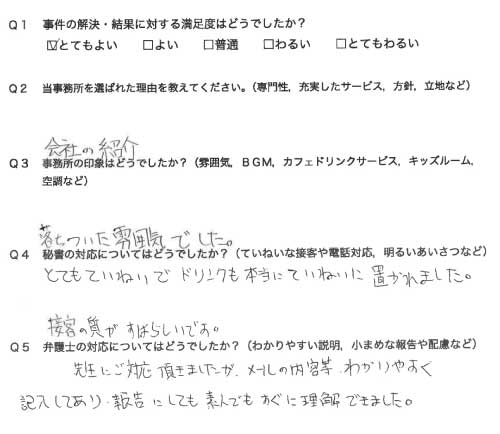 Q1 事件の解決・結果に対する満足度はどうでしたか?
☑とてもよい □よい □普通 □わるい □とてもわるい
Q2 当事務所を選ばれた理由を教えてください。(専門性，充実したサービス，方針，立地など)
会社の紹介
Q3 事務所の印象はどうでしたか?(雰囲気，BGM，カフェドリンクサービス，キッズルーム，
空調など)
落ちついた雰囲気でした。
Q4 秘書の対応についてはどうでしたか?(ていねいな接客や電話対応，明るいあいさつなど)
とてもていねいで ドリンクも本当にていねいに置かれました。
接客の質がすばらしいです。
Q5 弁護士の対応についてはどうでしたか?(わかりやすい説明，小まめな報告や配慮など)
先生にご対応頂きましたが、メールの内容等、わかりやすく
記入してあり、報告にしても素人でもすぐに理解できました。